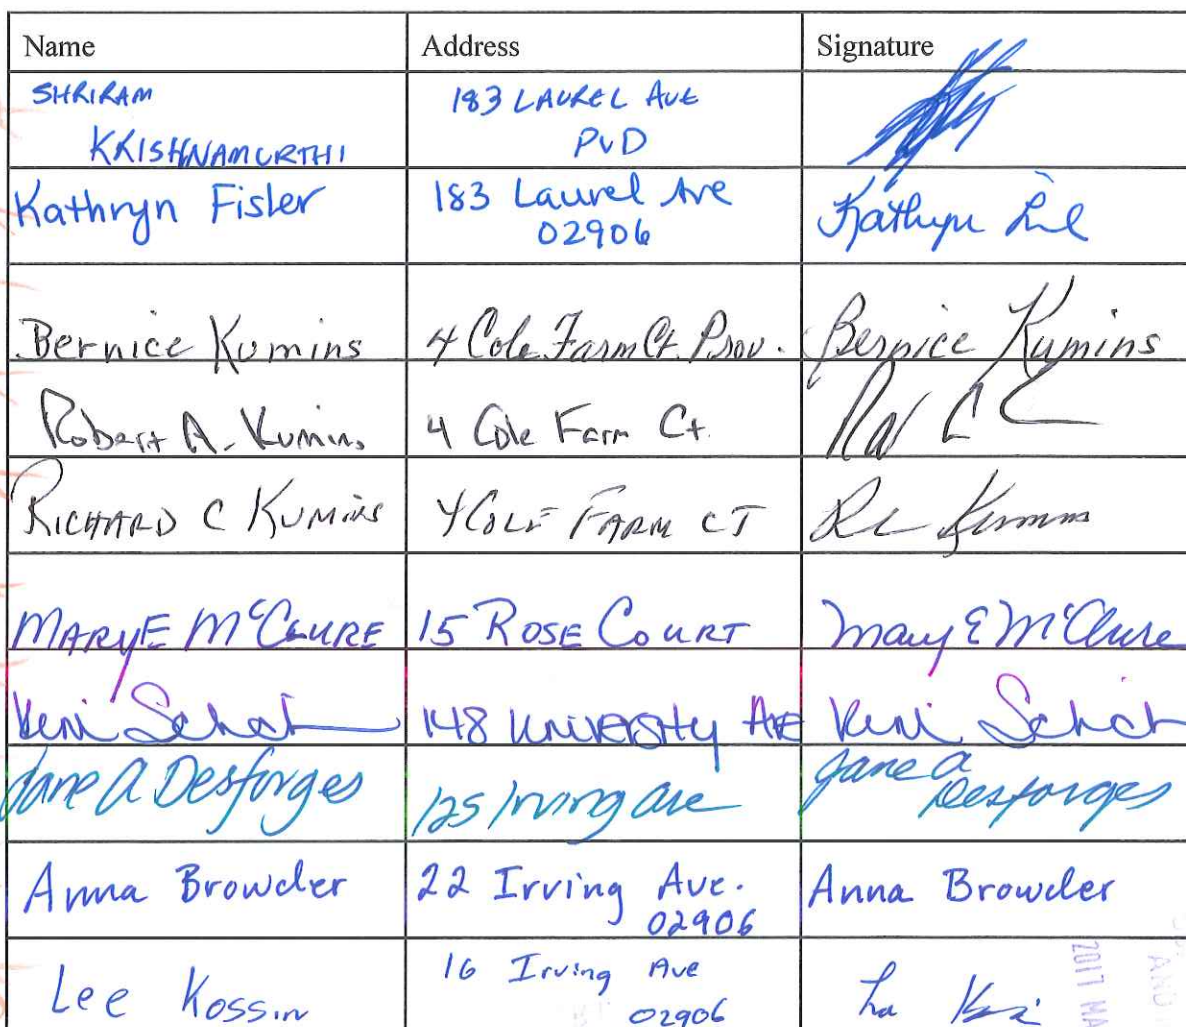 Name Address Signature
SHRIRAM 183 LAUREL AVE
KRISHNAMURTHI PVD
Kathryn Fisler 183 Laurel Ave Kathryn
02906
Bernice Kumins 4 Cole Farm Ct. Prov. Bernice Kumins
Robert A. Kumins 4 Cole Farm Ct.
RICHARD C KUMINS 4 COLE FARM CT Kumins
MARY E McCLURE 15 ROSE COURT Mary E McClure
148 University Ave
Jane A Desforges 125 Irving Ave Jane A
Desforges
Anna Browder 22 Irving Ave. Anna Browder
02906
Lee Kossin 16 Irving Ave
02906
2017 MA